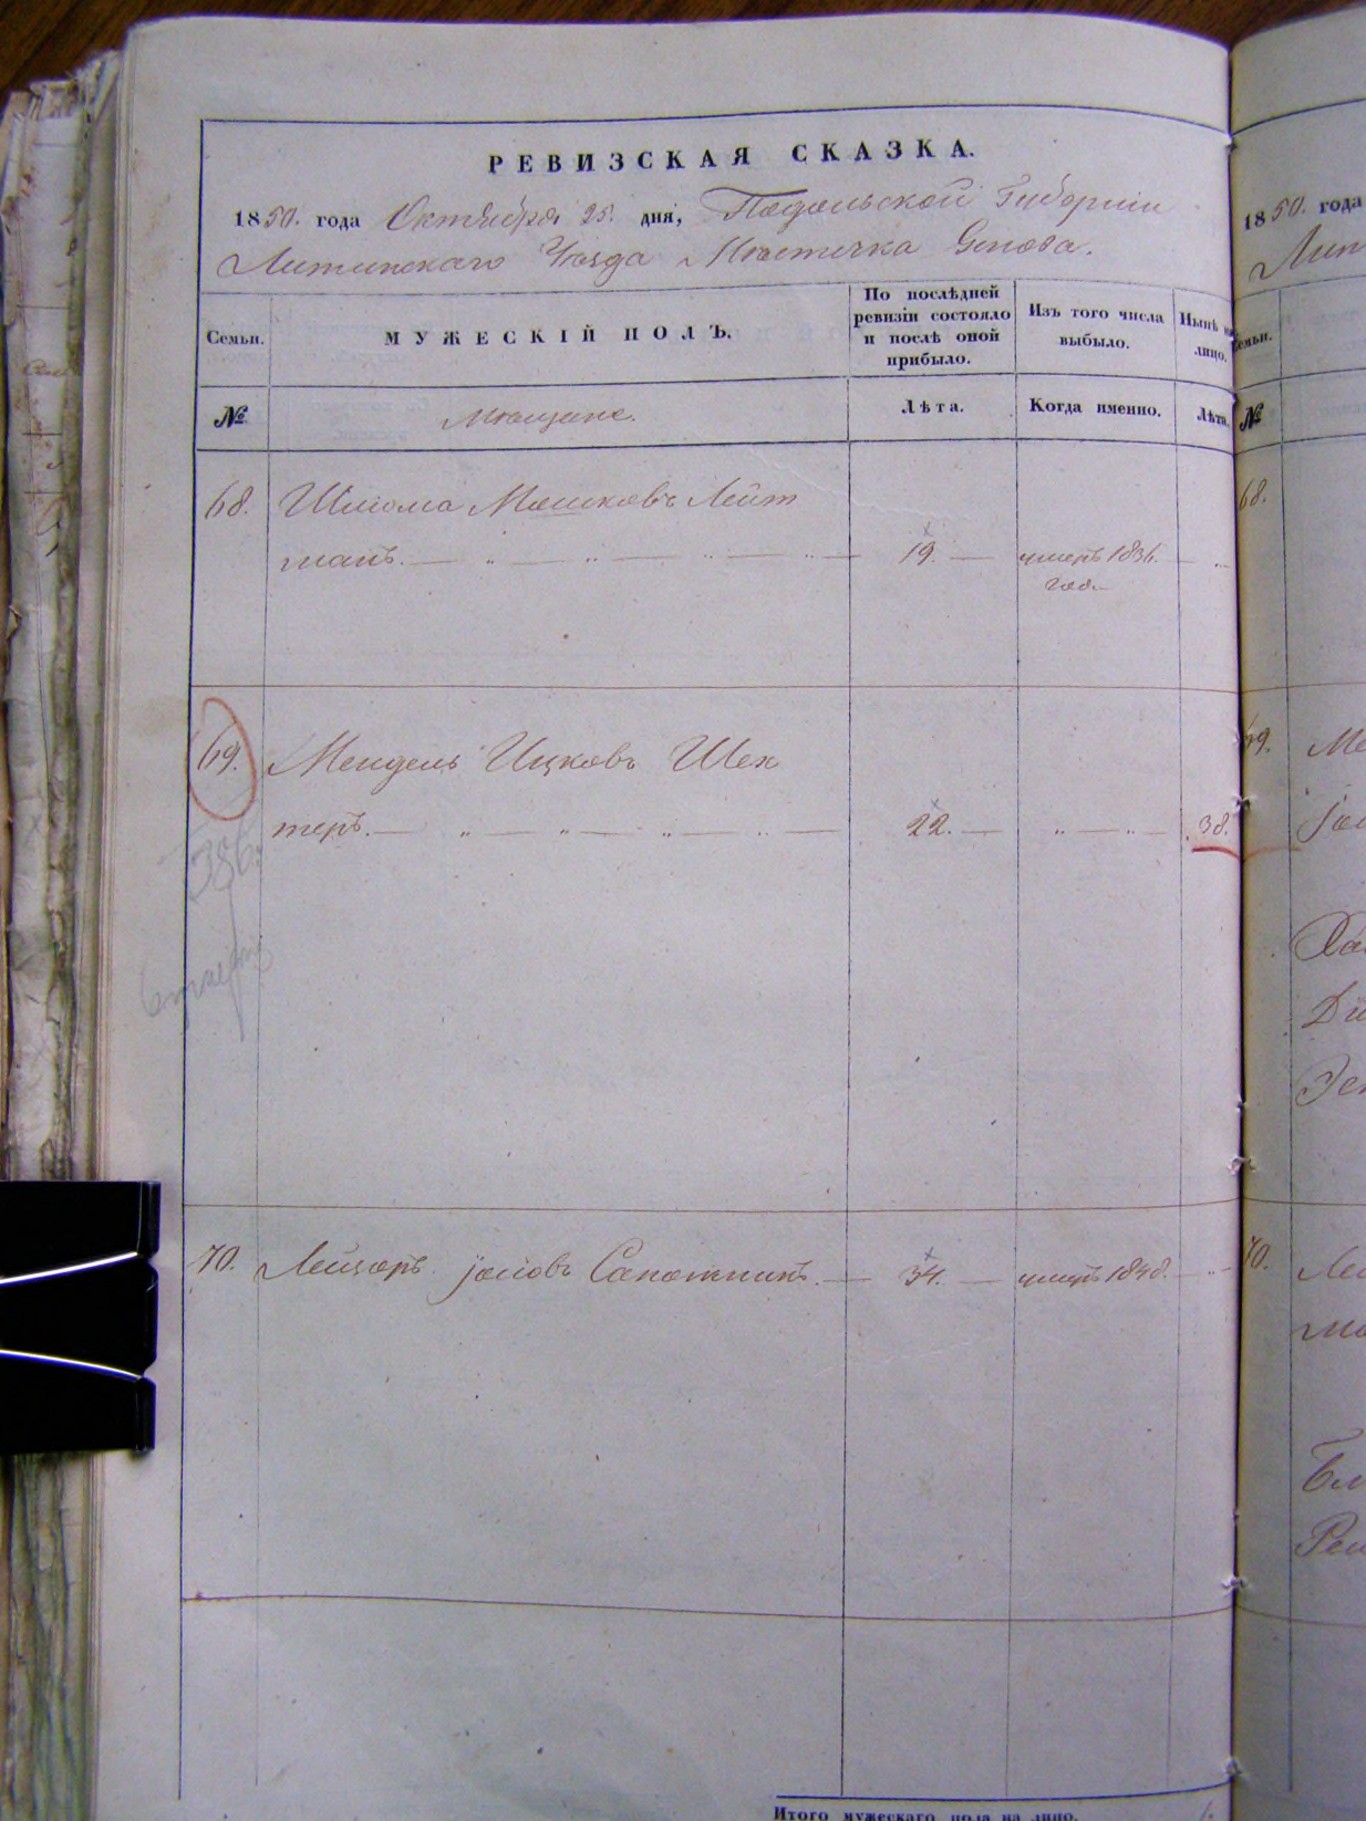 РЕВИЗСКАЯ СКАЗКА.
1850. года Октября 25. дня, Подольской Губерніи
Литинскаго Уѣзда Мѣстечка
Семьи.
МУЖЕСКІЙ ПОЛЪ.
По послѣдней
ревизіи состояло
и послѣ оной
прибыло.
Изъ того числа
выбыло.
Нынѣ на
лицо.
№
Мѣщане.
Лѣта.
Когда именно.
Лѣта.
68. Шлиома Мошковъ Лейт
манъ. 19. умеръ 1836.
год.
69. Мендель Ицковъ Шех
теръ. 22. 38.
70. Лейзоръ Іосіовъ Сапожникъ. 34. умеръ 1848.
Итого мужескаго пола на лицо. 1.
1850. года
Лит
Семьи.
№
68.
69. Ме
Ха
70. Ле